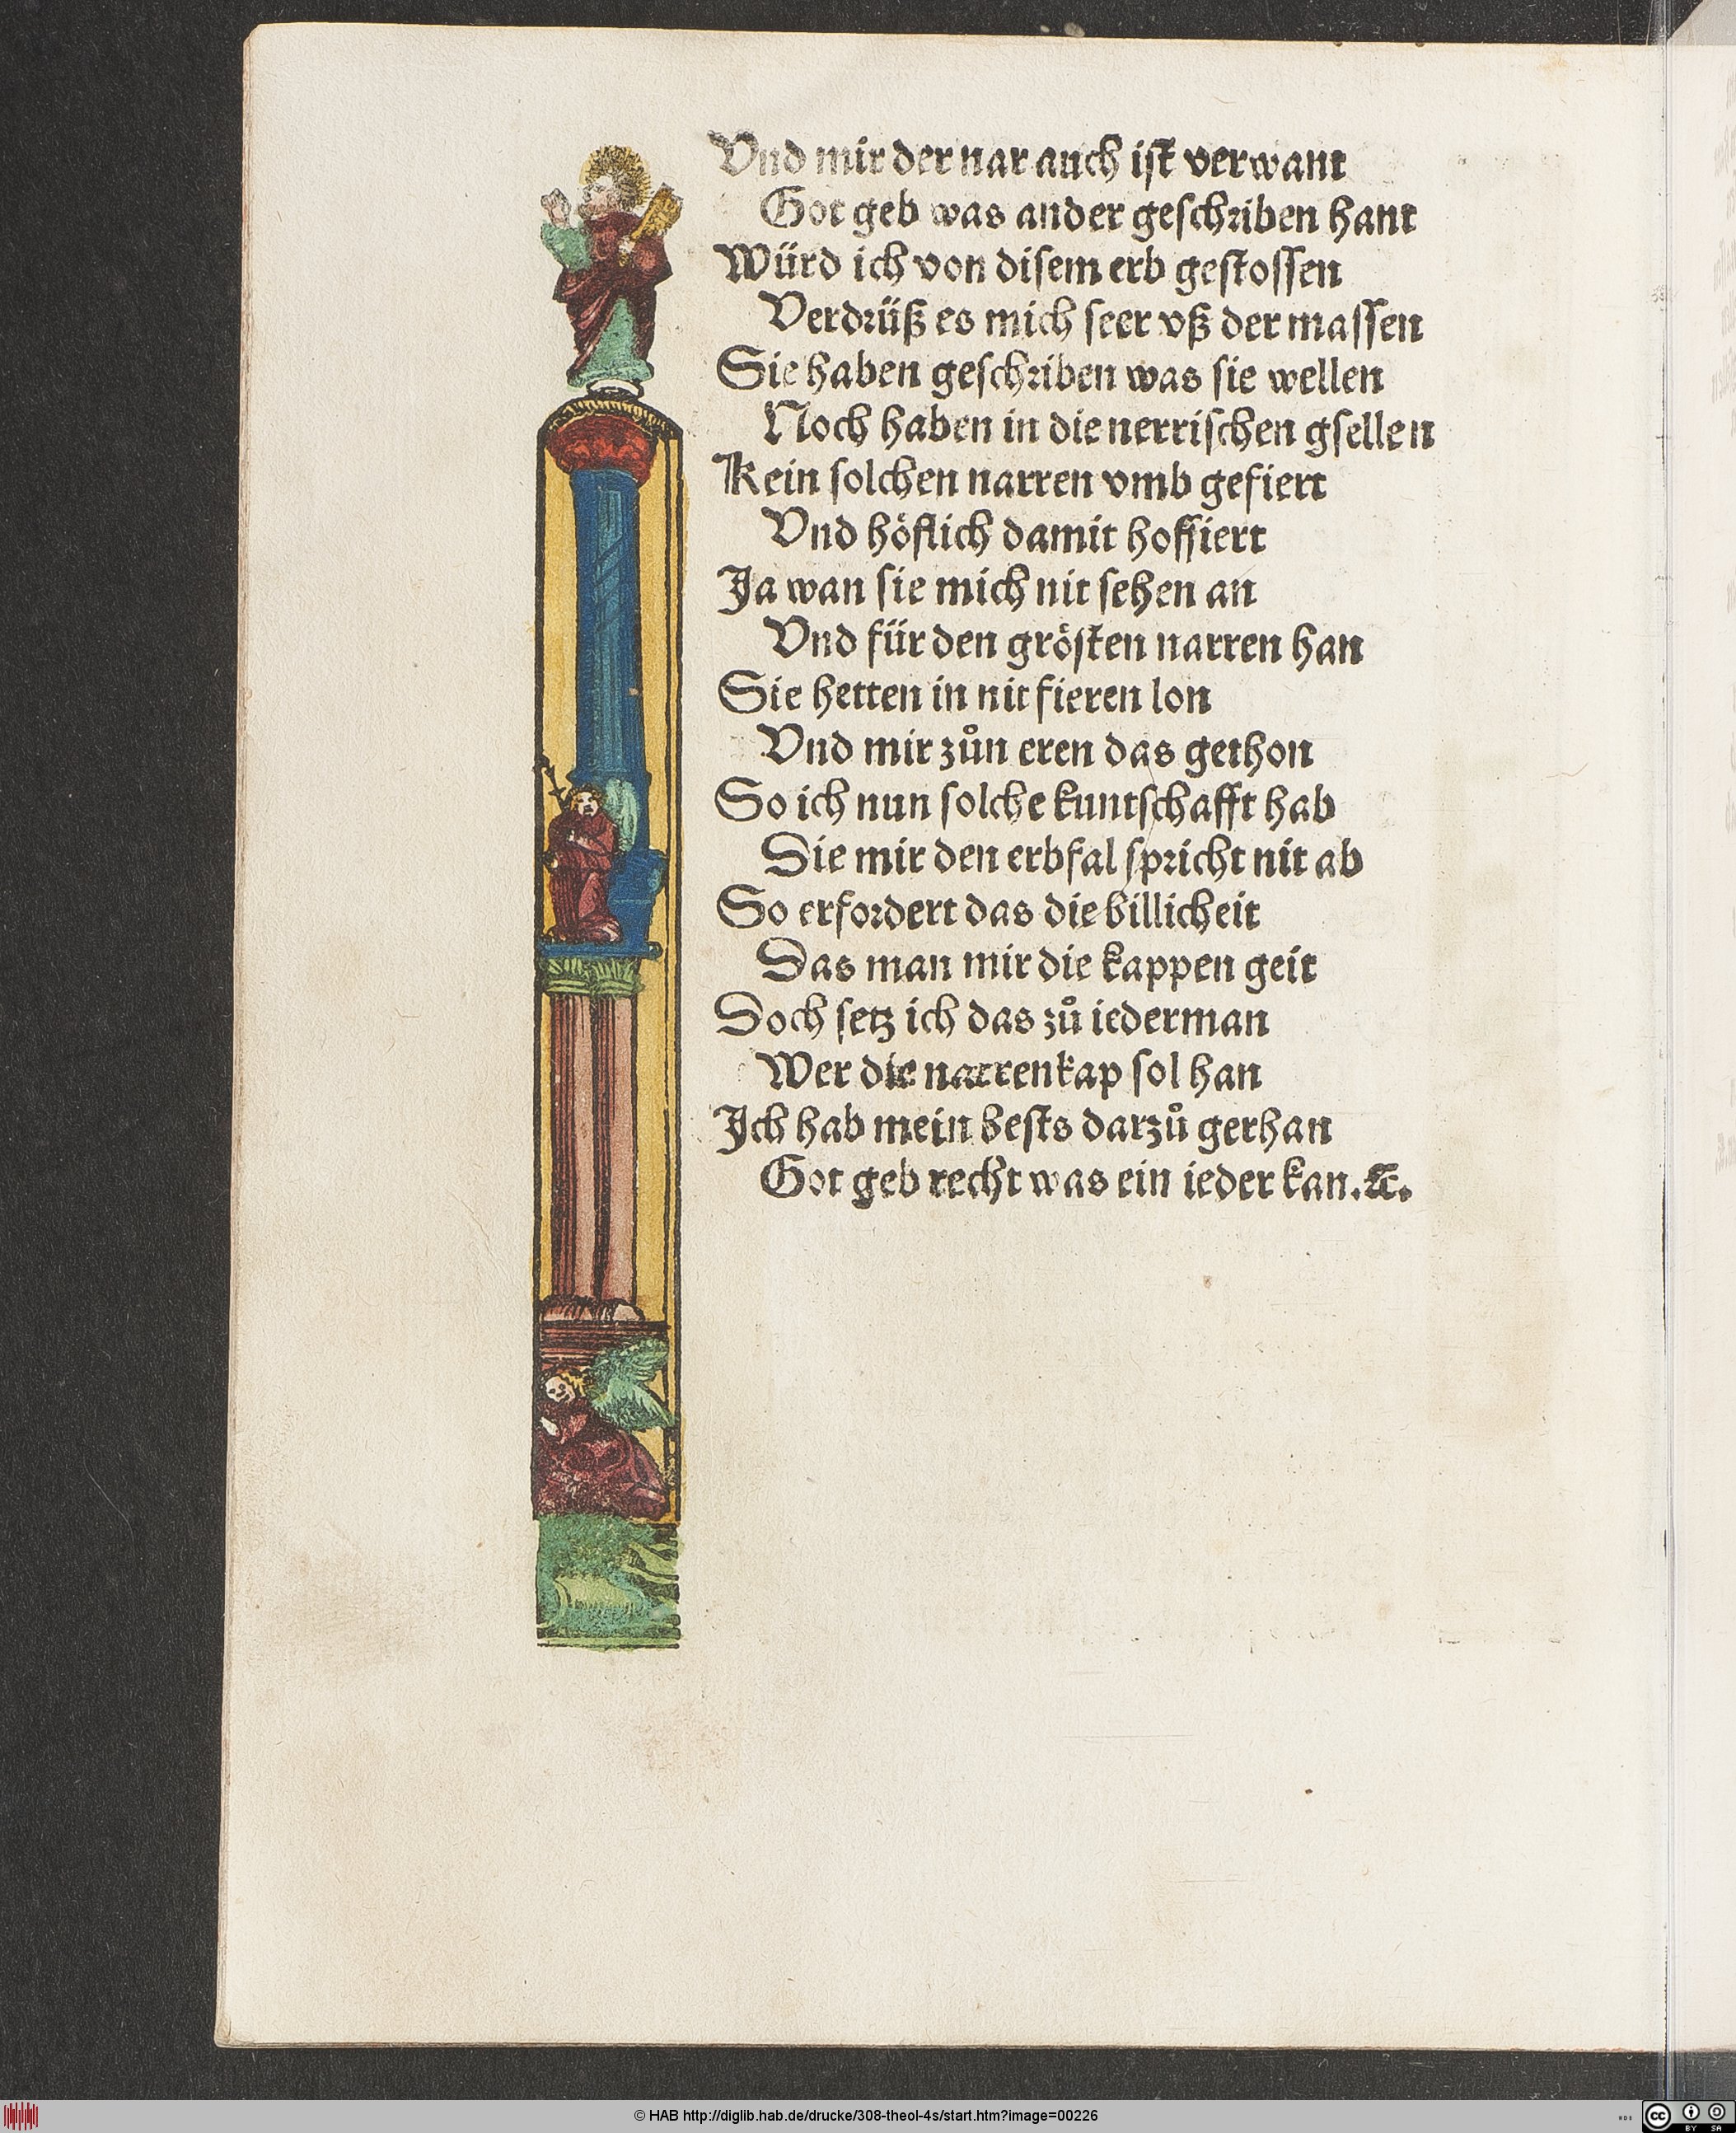 Vnd mir der nar auch iſt verwant
Got geb was ander geſchriben hant
Würd ich von diſem erb geſtoſſen
Verdrüß es mich ſeer vß der maſſen
Sie haben geſchriben was ſie wellen
Noch haben in die nerriſchen gſellen
Kein ſolchen narren vmb gefiert
Vnd höflich damit hoffiert
Ja wan ſie mich nit ſehen an
Vnd für den gröſten narren han
Sie hetten in nit fieren lon
Vnd mir zůn eren das gethon
So ich nun ſolche kuntſchafft hab
Die mir den erbfal ſpricht nit ab
So erfordert das die billicheit
Das man mir die kappen geit
Doch ſetz ich das zů iederman
Wer die narrenkap ſol han
Ich hab mein beſts darzů gethan
Got geb recht was ein ieder kan.⁊c.
© HAB http://diglib.hab.de/drucke/308-theol-4s/start.htm?image=00226
cc BY SA